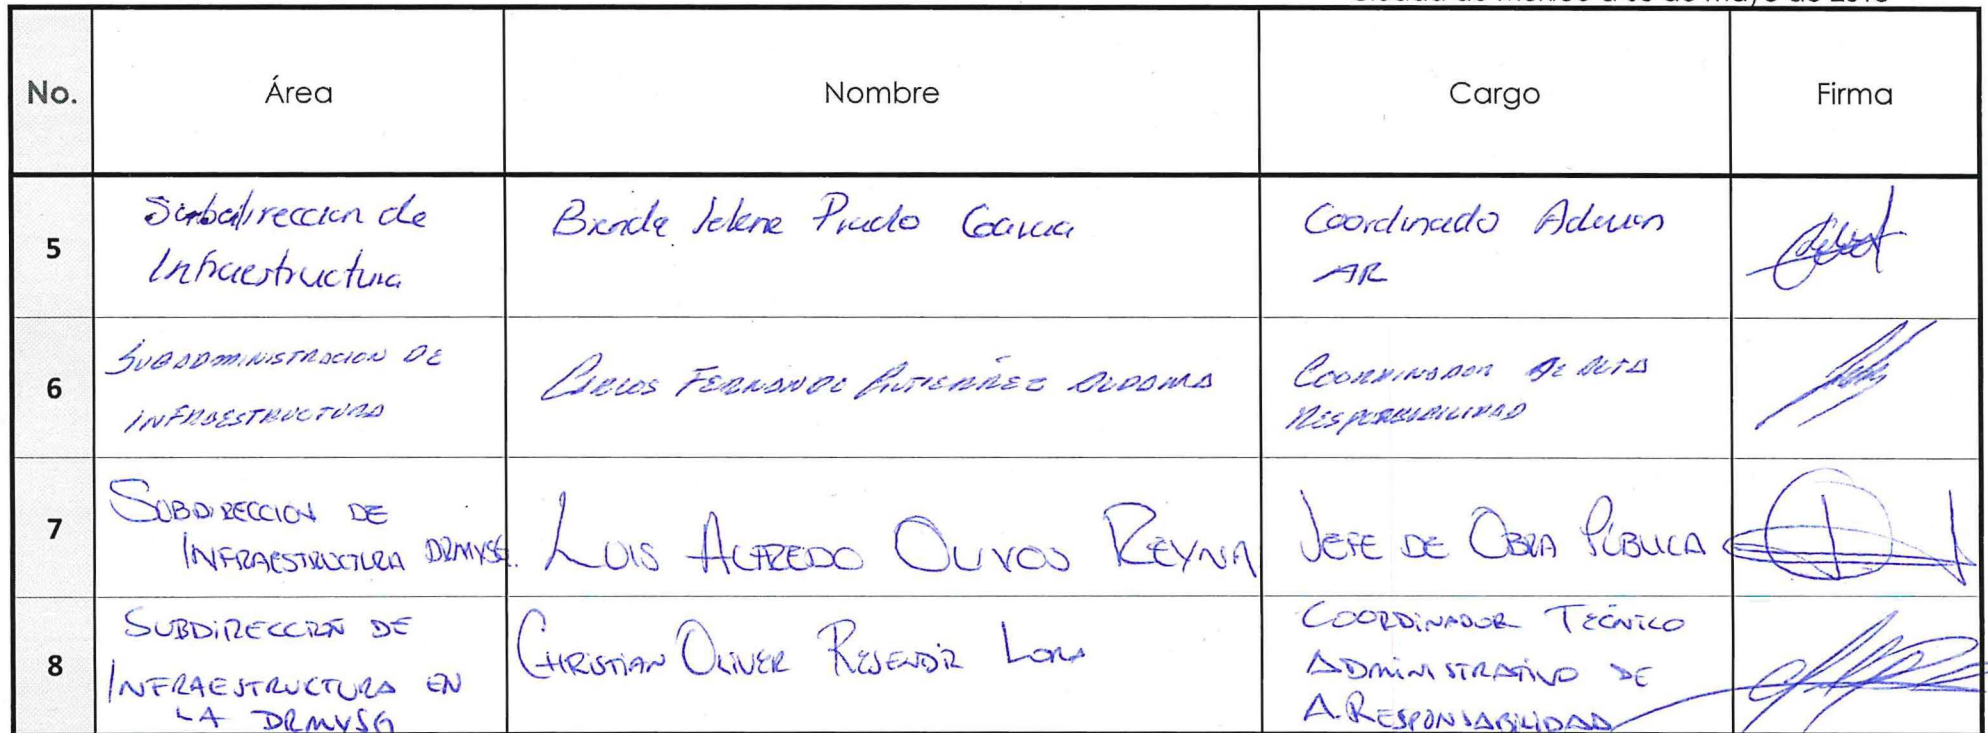 No. Área Nombre Cargo Firma
5 Subdireccion de Infraestructura Brenda Selene Prado Garcia Coordinado Admon AR
6 SUBADMINISTRACION DE INFRAESTRUCTURA CARLOS FERNANDO GUTIERREZ COORDINADOR DE ALTA RESPONSABILIDAD
7 SUBDIRECCION DE INFRAESTRUCTURA DRMYSG. LUIS ALFREDO OLIVOS REYNA JEFE DE OBRA PÚBLICA
8 SUBDIRECCIÓN DE INFRAESTRUCTURA EN LA DRMYSG CHRISTIAN OLIVER RESENDIZ LORA COORDINADOR TÉCNICO ADMINISTRATIVO DE A. RESPONSABILIDAD